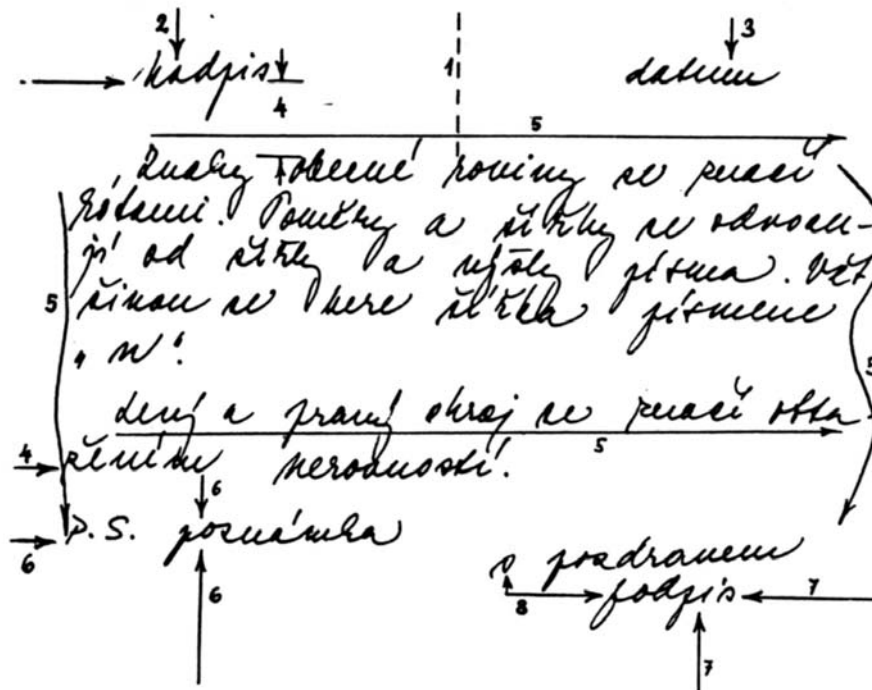 2 3
nadpis 1 datum
4
5
Znaky obecné roviny se značí
kótami. Poměry a šířky se odvozu-
jí od šířky a výšky písma. Vět
5 šinou se bere šířka písmene
„n“. 5
Levý a pravý okraj se značí obta-
5
4 žením nerovností.
6
6 P.S. poznámka
s pozdravem
6 8 podpis 7
7